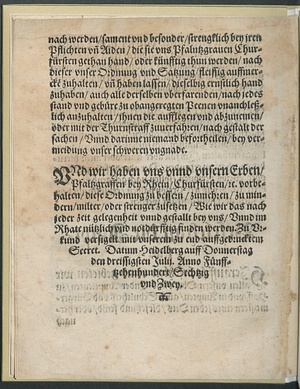 nach werden/ sament vnd besonder/ strengklich bey jren
Pflichten vñ Aiden/ die sie vns Pfaltzgrauen Chur-
fürsten gethan hand/ oder künfftig thun werden/ nach
dieser vnser Ordnung vnd Satzung/ fleissig auffmer-
cks zuhalten/ vñ haben lassen/ dieselbigen ernstlich hand
zuhaben/ auch alle derselben vberfarenden/ nach jedes
stand vnd gebür zu obangeregten Peenen vnnachleß-
lich anzuhalten/ jhnen die aufflegen vnd abzunemen/
oder mit der Thurnstraff zuuerfahren/ nach gestalt der
sachen/ Vnnd darinne niemand beforthelen/ bey ver-
meidung vnser schweren vngnade.
VNd wir haben vns vnnd vnsern Erben/
Pfaltzgraffen bey Rhein/ Churfürsten/ ꝛc. vorbe-
halten/ diese Ordnung zu bessern/ zumehren/ zu min-
dern/ milter/ oder strenger zusetzen/ Wie wir das nach
jeder zeit gelegenheit vnnd gestalt bey vns/ Vnnd im
Rhate nützlich vnd nodtürfftig finden werden. Zu Vr-
kund versigelt mit vnserem zu end auffgetrucktem
Secret. Datum Heidelberg auff Donnerstag
den dreissigsten Julij. Anno Fünff-
tzehenhundert/ Sechtzig
vnd Zwey.